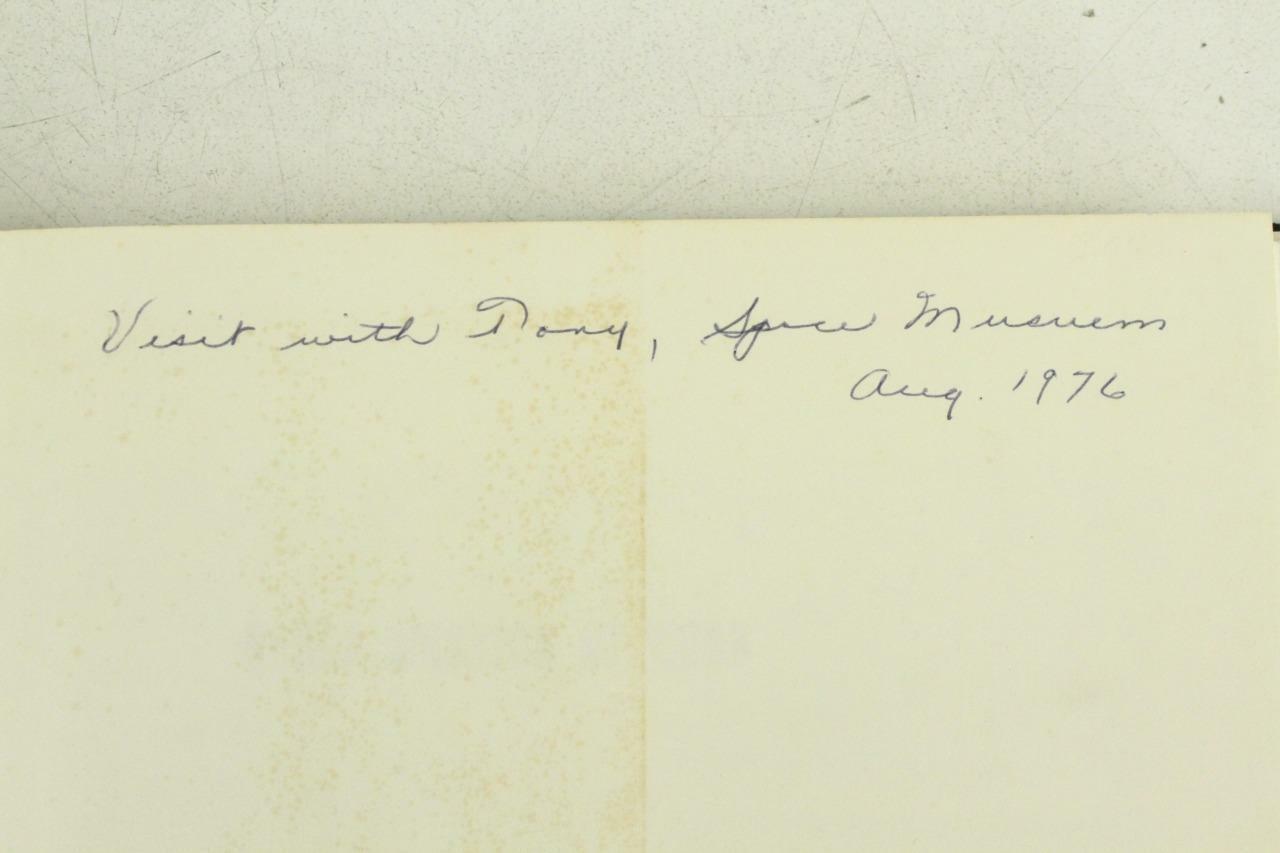 Visit with Tony, Space Museum
Aug. 1976